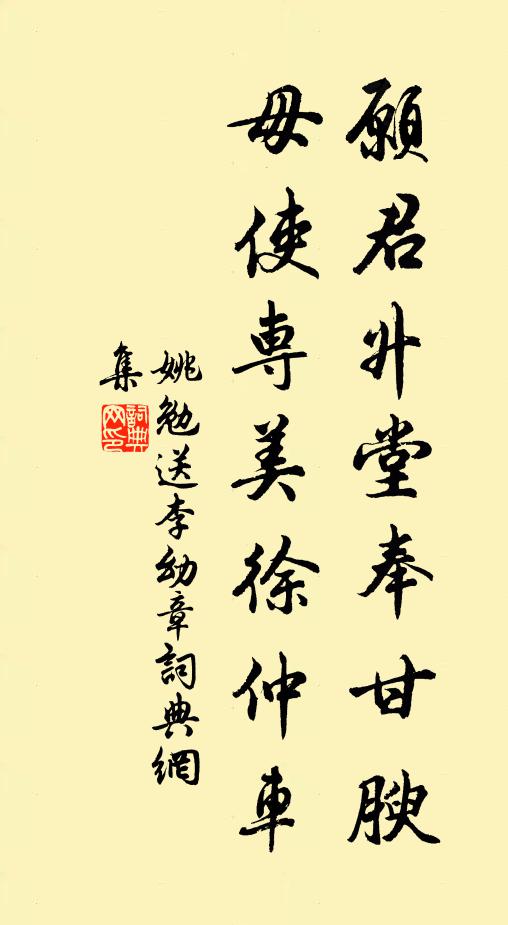 願君升堂奉甘腴
毋使専美徐仲車
姚勉送李幼章詞典網
集
詞典網印